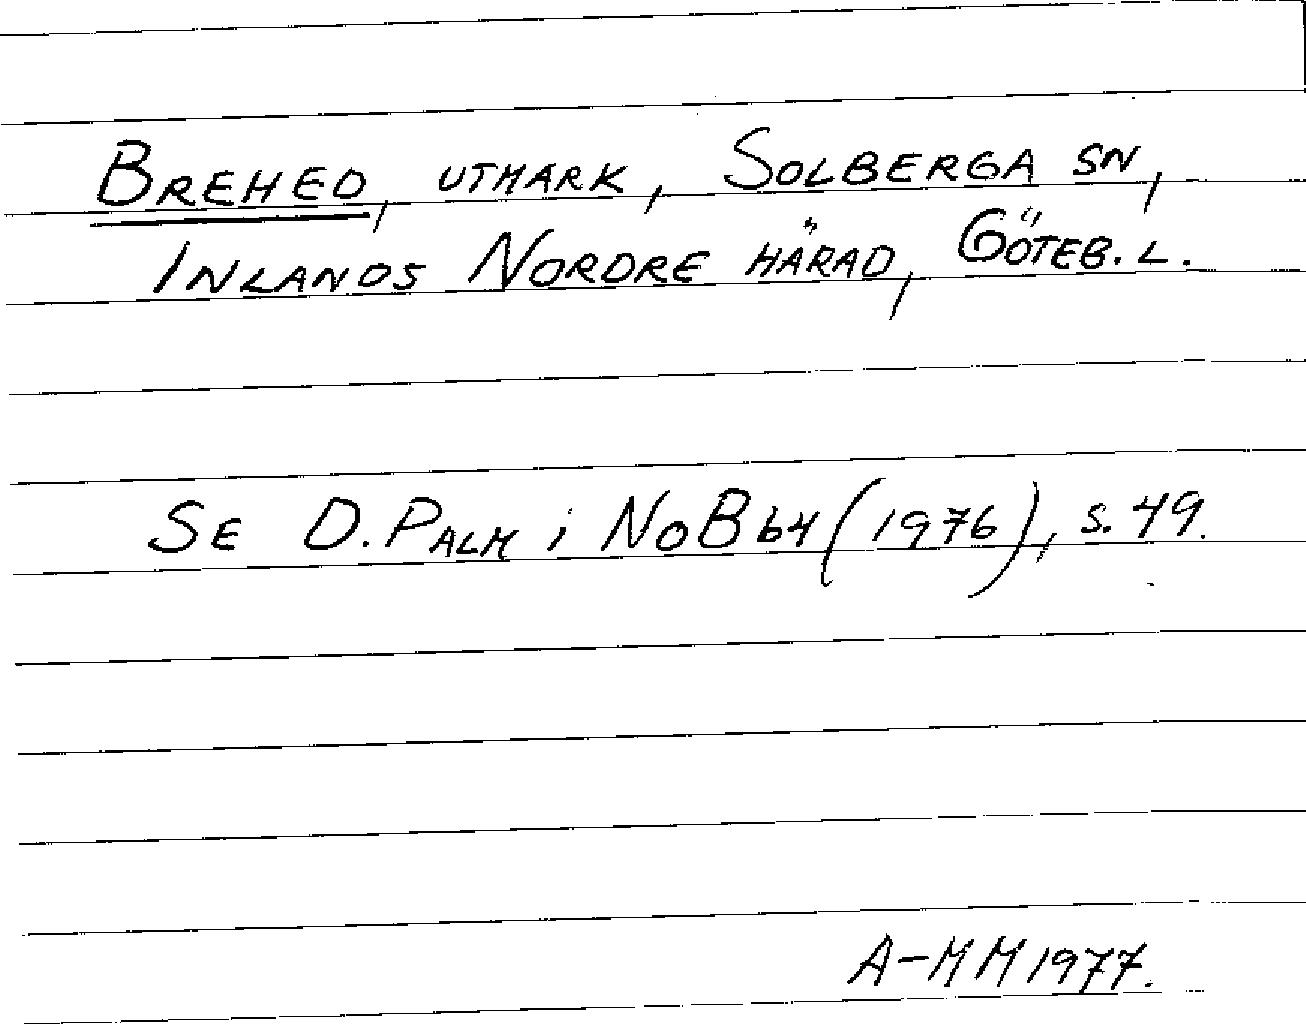 BREHED, UTMARK, SOLBERGA SN,
INLANDS NORDRE HÄRAD, GÖTEB. L.
SE D. PALM i NoB 64 (1976), s. 49.
A-MM 1977.